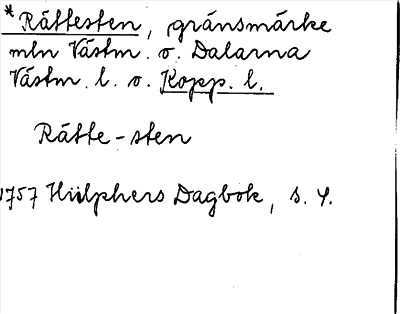 * Råttesten, gränsmärke
mln Västm. o. Dalarna
Västm. l. o. Kopp. l.
Råtte-sten
1757 Hülphers Dagbok, s. 4.